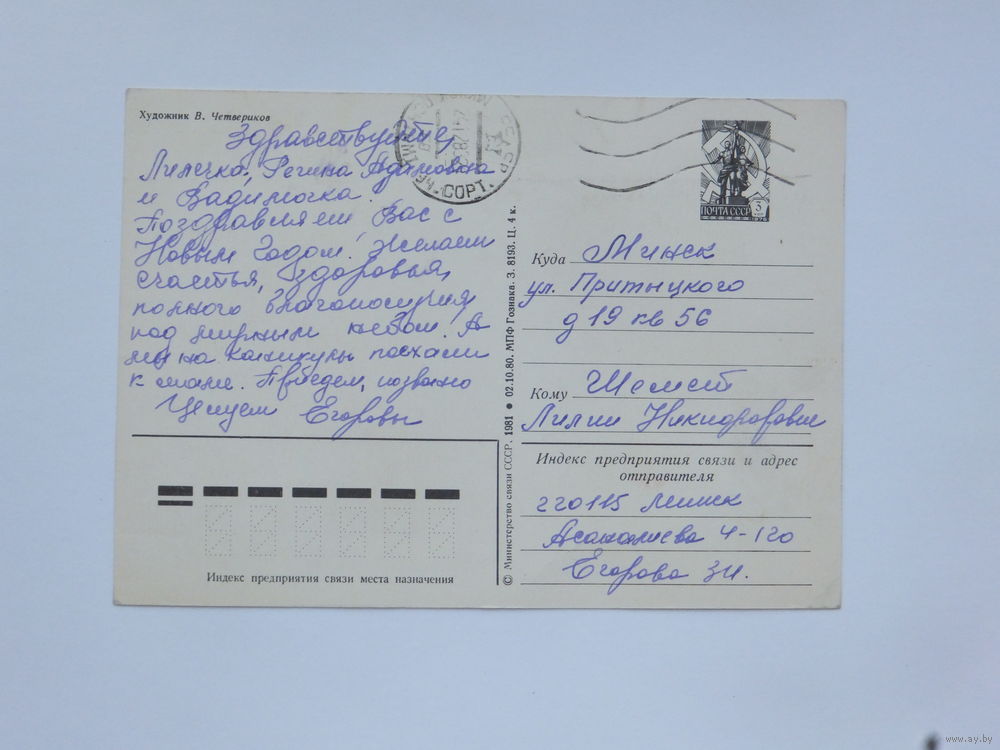 Художник В. Четвериков
Здравствуйте,
Лилечка, Регина Адамовна
и Вадимочка!
Поздравляем Вас с
Новым Годом! Желаем
счастья, здоровья,
полного благополучия,
под мирным небом! А
мы на каникулы поехали
к маме. Приедем, позвоню
Целуем Егоровы
Индекс предприятия связи места назначения
© Министерство связи СССР. 1981 ● 02.10.80. МПФ Гознака. З. 8193. Ц. 4 к.
СОРТ.
ПОЧТА СССР 3
Куда Минск
ул. Притыцкого
д 19 кв 56
Кому Шемет
Лилии Никифоровне
Индекс предприятия связи и адрес
отправителя
220115 Минск
Асаналиева 4-120
Егорова З.И.
www.ay.by